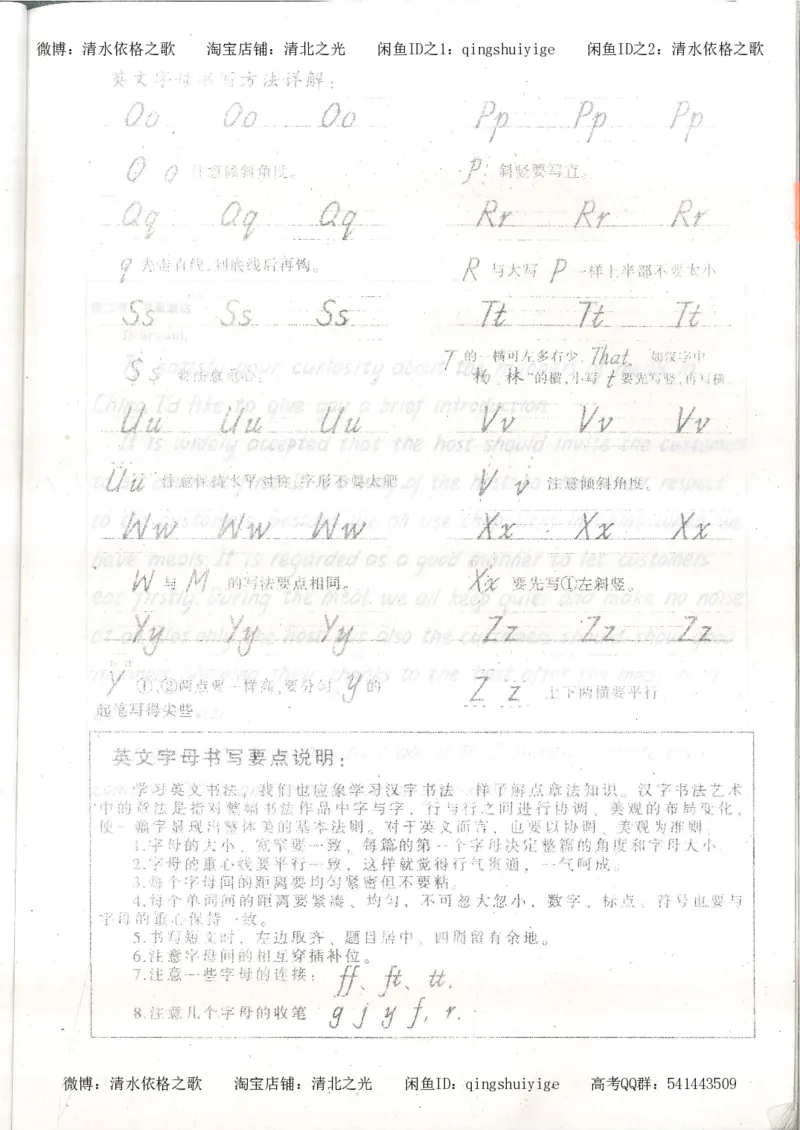 微博：清水依格之歌 淘宝店铺：清北之光 闲鱼ID之1：qingshuiyige 闲鱼ID之2：清水依格之歌
英文字母书写方法详解：
Oo Oo Oo Pp Pp Pp
O o 注意倾斜角度。 P: 斜竖要写直。
Qq Qq Qq Rr Rr Rr
q 先走直线，到底线后再钩。 R 与大写 P 一样上半部不要太小
Ss Ss Ss Tt Tt Tt
Dear paul,
T 的一横可左多右少，That. 如汉字中
S s 要注意重心。 "杨、林"的横，小写 t 要先写竖，再写横。
To satisfy your curiosity about the
China, I'd like to give you a brief introduction.
Uu Uu Uu Vv Vv Vv
It is widely accepted that the host should invite the customers
Uu 注意保持水平对称，字形不要太肥 V v 注意倾斜角度。
Ww Ww Ww Xx Xx Xx
have meals. It is regarded as a good manner to let customers
W 与 M 的写法要点相同。 Xx 要先写①左斜竖。
eat firstly. During the meal, we all keep quiet and make no noise
Yy Yy Yy Zz Zz Zz
at all. Not only the host but also the customers should show good
thanks to the host after the meal
Y ①,②两点要一样高，要分匀。y 的 Z z 上下两横要平行。
起笔写得尖些。
英文字母书写要点说明：
学习英文书法，我们也应象学习汉字书法一样了解点章法知识。汉字书法艺术
中的章法是指对整幅书法作品中字与字、行与行之间进行协调、美观的布局变化，
使一幅字显现出整体美的基本法则。对于英文而言，也要以协调、美观为准则：
1.字母的大小、宽窄要一致，每篇的第一个字母决定整篇的角度和字母大小。
2.字母的重心线要平行一致，这样就觉得行气贯通，一气呵成。
3.每个字母间的距离要均匀紧密但不要粘。
4.每个单词间的距离要紧凑、均匀，不可忽大忽小，数字、标点、符号也要与
字母的重心保持一致。
5.书写短文时，左边取齐、题目居中、四周留有余地。
6.注意字母间的相互穿插补位。
7.注意一些字母的连接：ff、ft、tt.
8.注意几个字母的收笔 g j y f, r.
微博：清水依格之歌 淘宝店铺：清北之光 闲鱼ID：qingshuiyige 高考QQ群：541443509